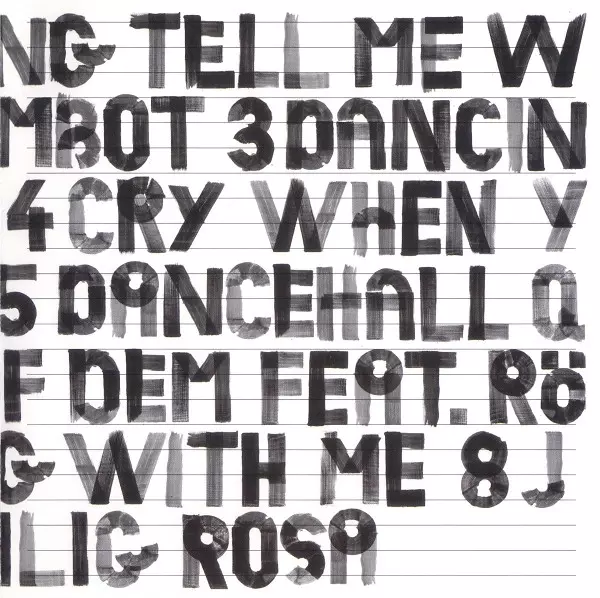 NG TELL ME W
MBOT 3 DANCIN
4 CRY WHEN Y
5 DANCEHALL Q
F DEM FEAT. RÖ
G WITH ME 8 J
ILIG ROSA